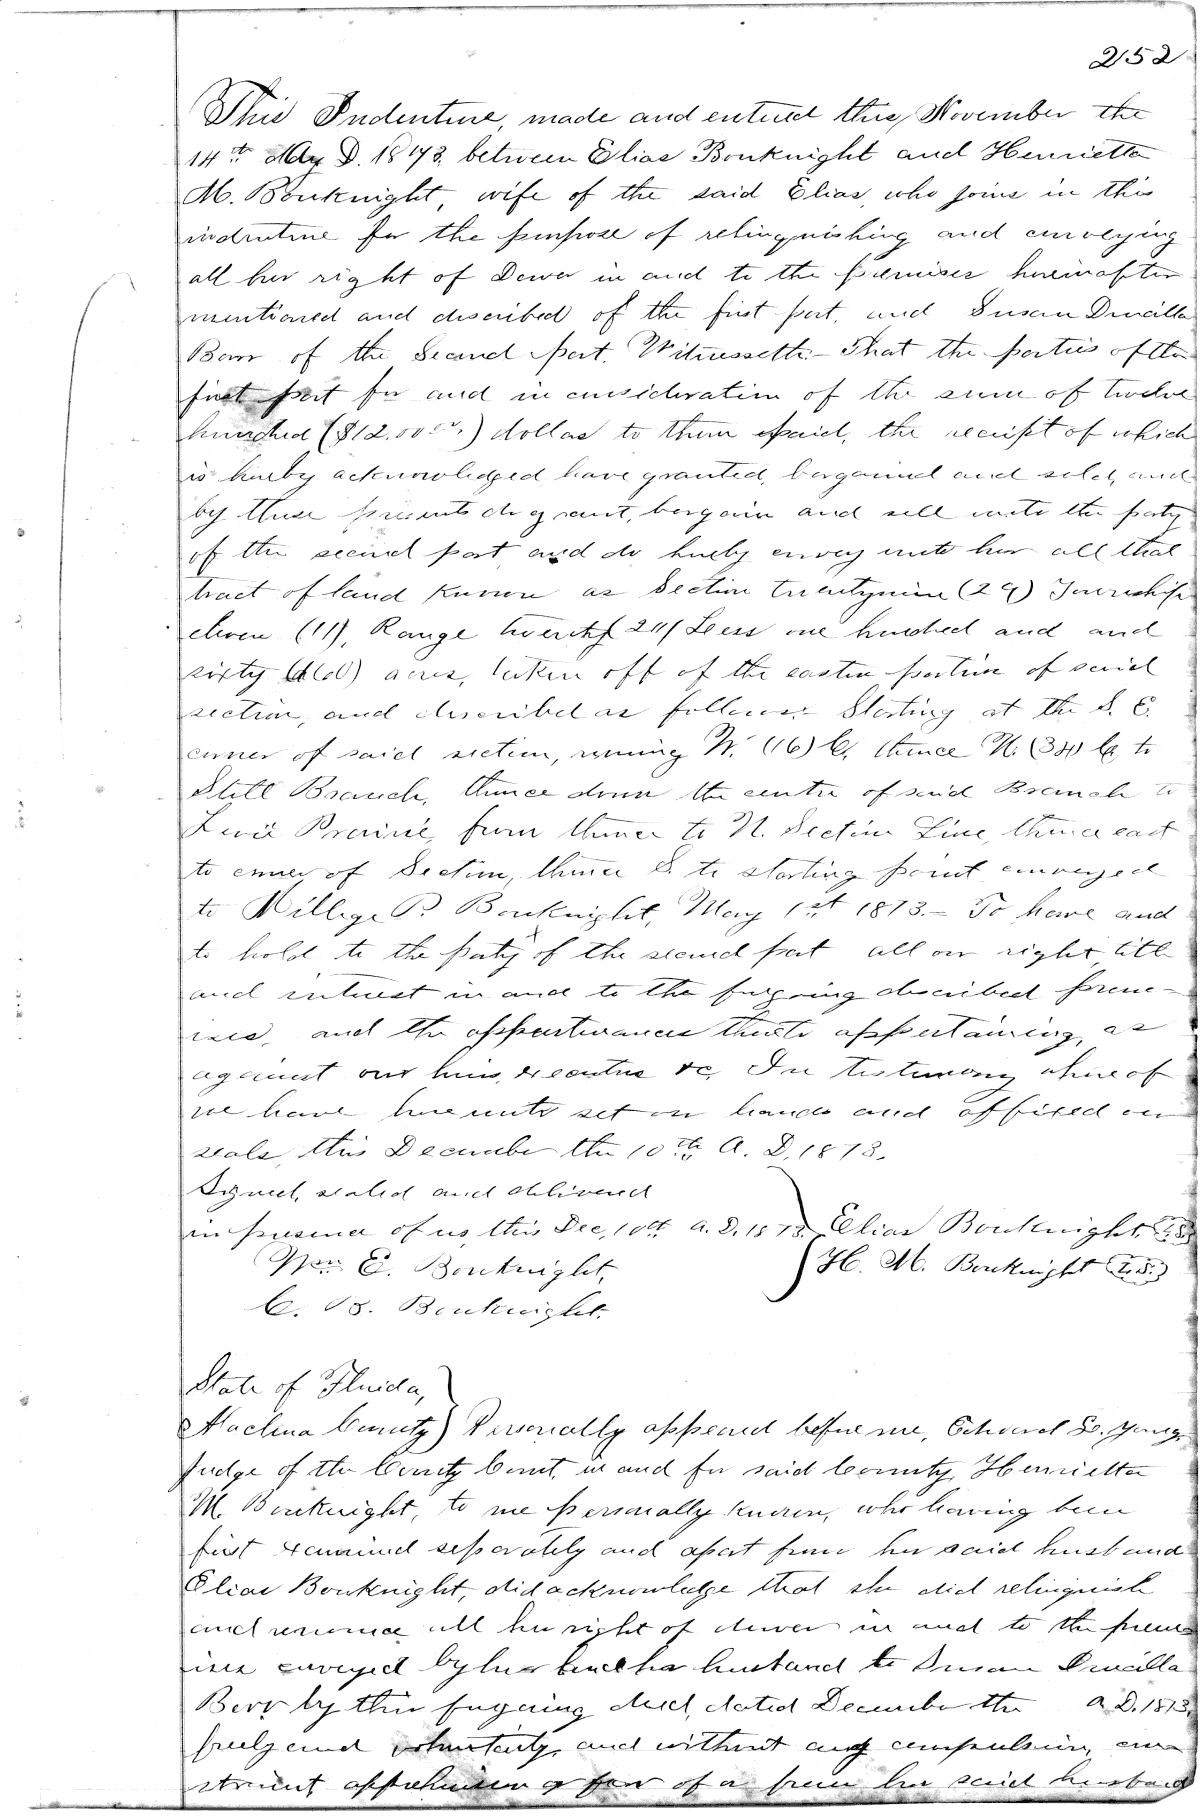 252
This Indenture, made and entered this, November the
14th A. D. 1873. between Elias Bouknight and Henrietta
M. Bouknight, wife of the said Elias, who joins in this
indenture for the purpose of relinquishing and conveying
all her right of Dower in and to the premises hereinafter
mentioned and described of the first part, and Susan Drucilla
Barr of the Second part. Witnesseth:- That the parties of the
first part for and in consideration of the sum of twelve
hundred ($12.00.00.) dollas to them paid, the receipt of which
is hereby acknowledged have granted, bargained and sold, and
by these presents do grant, bargain and sell unto the party
of the second part, and do hereby convey unto her all that
tract of land known as Section twentynine (29) Township
eleven (11), Range twenty 20/ Less one hundred and and
sixty (160) acres, taken off of the eastern portion of said
section, and described as follows:- Starting at the S. E.
corner of said section, running W. (16) C, thence N. (34) C, to
Still Branch, thence down the centre of said Branch to
Levi Prairie, from thence to N. Section Line, thence east
to corner of Section, thence S. to starting point conveyed
to Millege P. Bouknight, May 1st 1873.- To have and
to hold to the party of the second part all our right, title
and interest in and to the foregoing described prem-
ises, and the appurtenances thereto appertaining, as
against our heirs, executors &c. In testimony whereof
we have hereunto set our hands and affixed our
seals, this December the 10th A. D. 1873.
Signed, sealed and delivered
in presence of us, this Dec, 10th A.D. 1873. Elias Bouknight (L.S.)
Wm E. Bouknight, H. M. Bouknight (L.S.)
C. B. Bouknight.
State of Florida,
Alachua County) Personally appeared before me, Edward L. Young
Judge of the County Court, in and for said County, Henrietta
M. Bouknight, to me personally known, who having been
first examined seperately and apart from her said husband
Elias Bouknight, did acknowledge that she did relinquish
and renounce all her right of dower in and to the prem
ises conveyed by her husband to Susan Drucilla
Barr by this foregoing deed, dated December the A.D. 1873,
freely and voluntarily, and without any compulsion, con
straint, apprehension or fear of or from her said husband